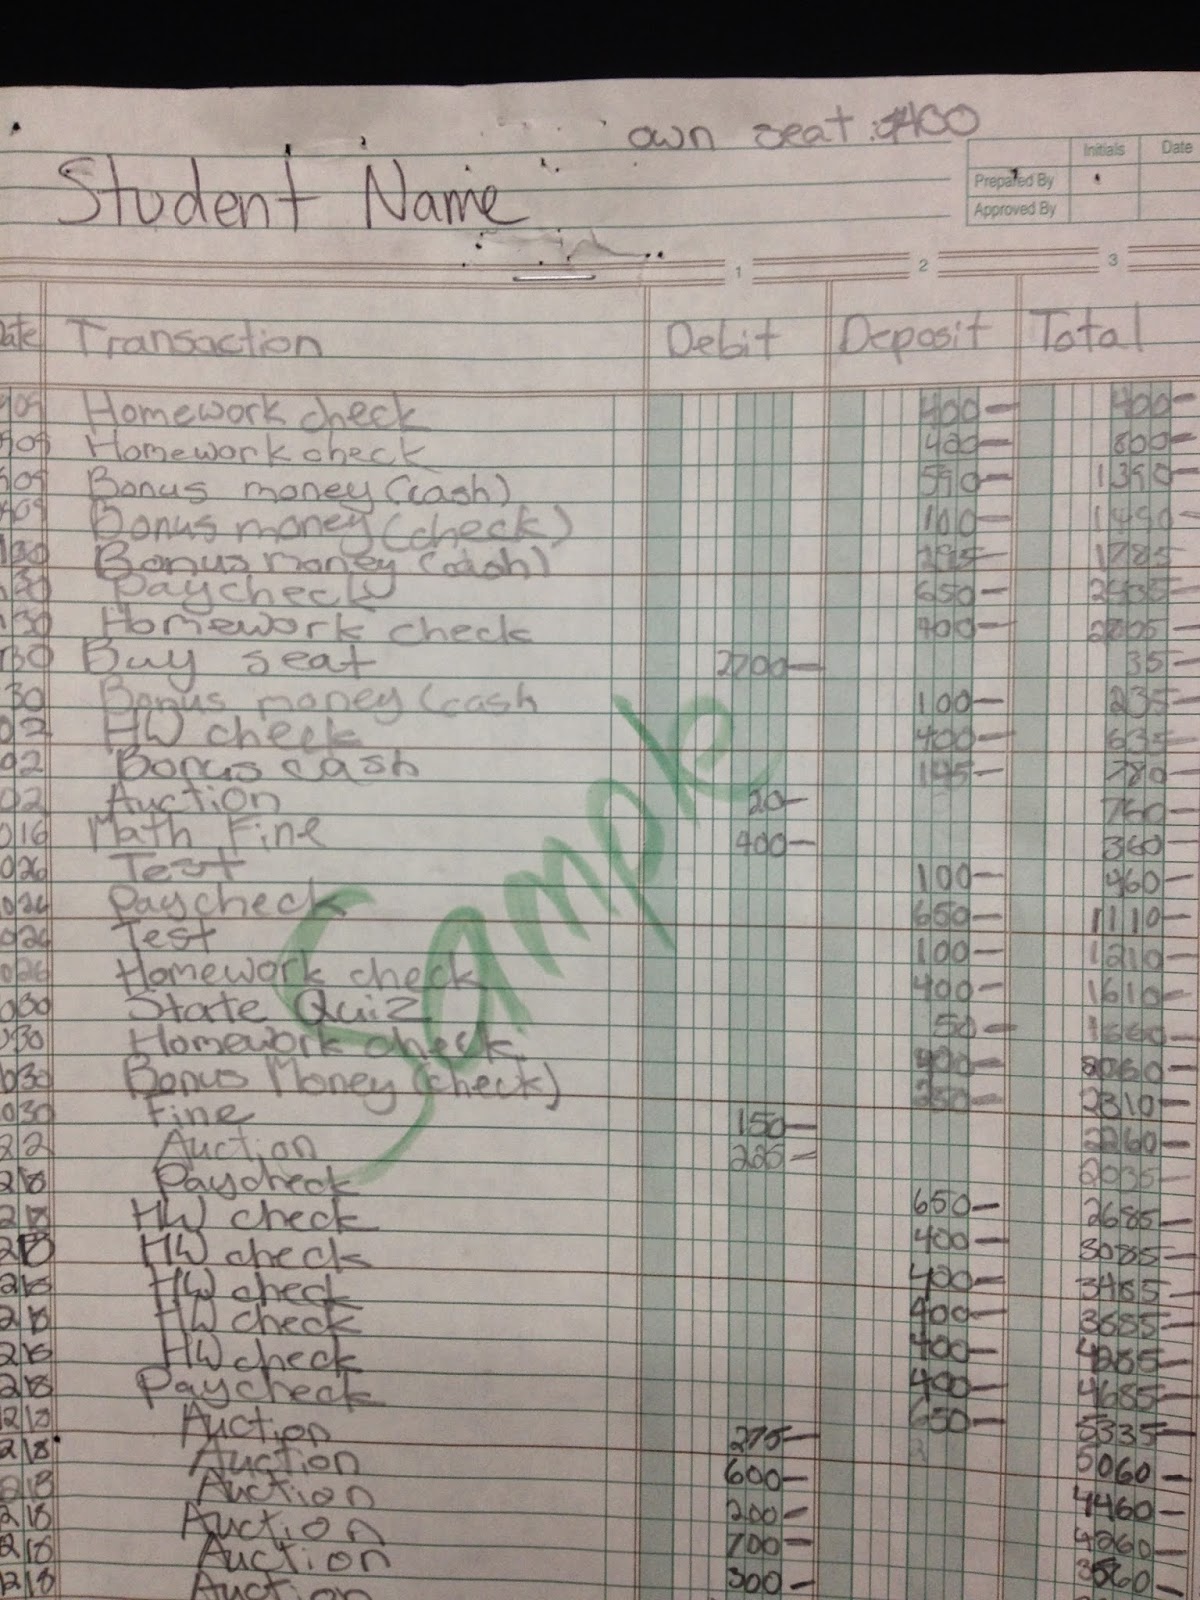 own seat $400
Initials Date
Prepared By
Approved By
Student Name
1 2 3
Date Transaction Debit Deposit Total
Homework check 400 400
Homework check 400 800
Bonus money (cash) 590 1390
Bonus money (check) 100 1490
Bonus money (cash) 295 1785
Paycheck 650
Homework check 400
Buy seat 2700 35
Bonus money (cash 100 235
HW check 400 635
Bonus cash 145 780
Auction 20 760
Math Fine 400 360
Test 100 460
Paycheck 650 1110
Test 100 1210
Homework check 400 1610
State Quiz 50 1660
Homework check 400 2060
Bonus Money (check) 250 2310
Fine 150 2260
Auction 225 2035
Paycheck 650 2685
HW check 400 3085
HW check 400 3485
HW check 400 3885
HW check 400 4285
HW check 400 4685
Paycheck 650 5335
Auction 275 5060
Auction 600 4460
Auction 200 4260
Auction 700 3560
Auction 300
Auction
Sample